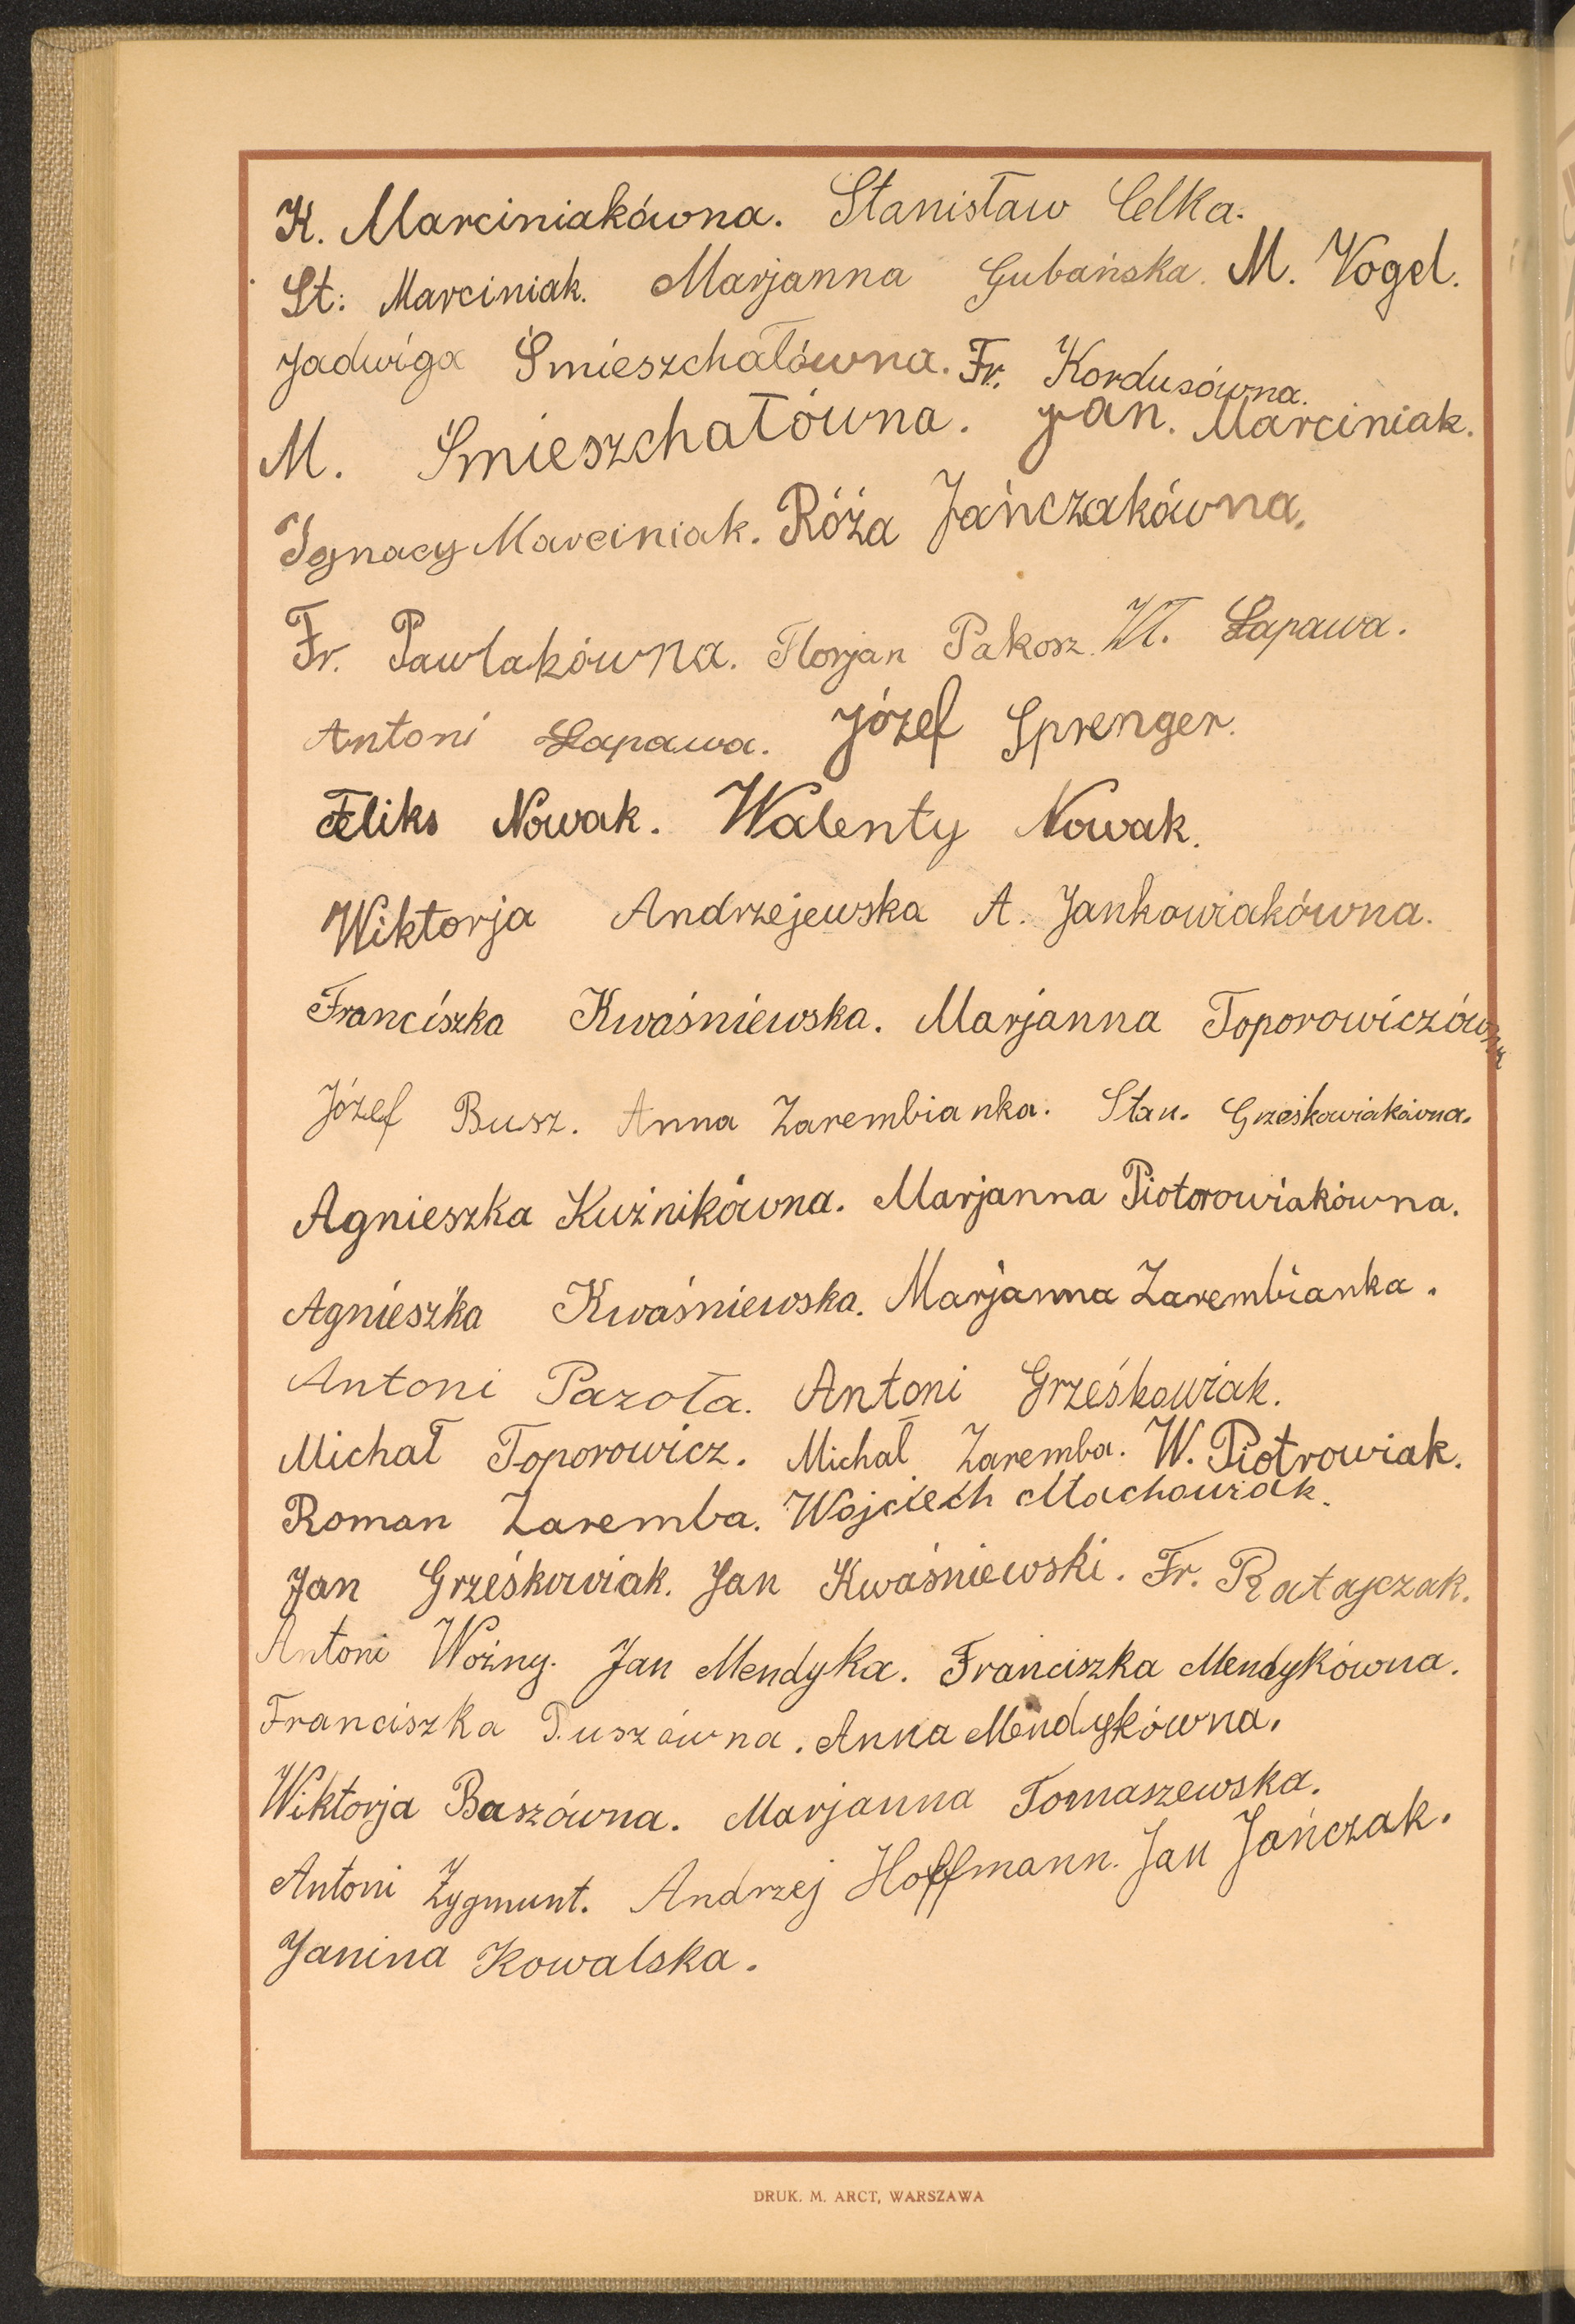 K. Marciniakówna. Stanisław Celka.
St: Marciniak. Marjanna Gubańska. M. Vogel.
Jadwiga Śmieszchałówna. Fr. Kordusówna.
M. Śmieszchałówna. Jan. Marciniak.
Ignacy Marciniak. Róża Jańczakówna.
Fr. Pawlakówna. Florjan Pakosz. Wł. Łapawa.
Antoni Łapawa. Józef Sprenger.
Feliks Nowak. Walenty Nowak.
Wiktorja Andrzejewska A. Jankowiakówna.
Franciszka Kwaśniewska. Marjanna Toporowiczówna
Józef Busz. Anna Zarembianka. Stan. Grześkowiakówna.
Agnieszka Kuźnikówna. Marjanna Piotorowiakówna.
Agnieszka Kwaśniewska. Marjanna Zarembianka.
Antoni Pazoła. Antoni Grześkowiak.
Michał Toporowicz. Michał Zaremba. W. Piotrowiak.
Roman Zaremba. Wojciech Machowiak.
Jan Grześkowiak. Jan Kwaśniewski. Fr. Ratajczak.
Antoni Woźny. Jan Mendyka. Franciszka Mendykówna.
Franciszka Puszówna. Anna Mendykówna.
Wiktorja Baszówna. Marjanna Tomaszewska.
Antoni Zygmunt. Andrzej Hoffmann. Jan Jańczak.
Janina Kowalska.
DRUK. M. ARCT, WARSZAWA